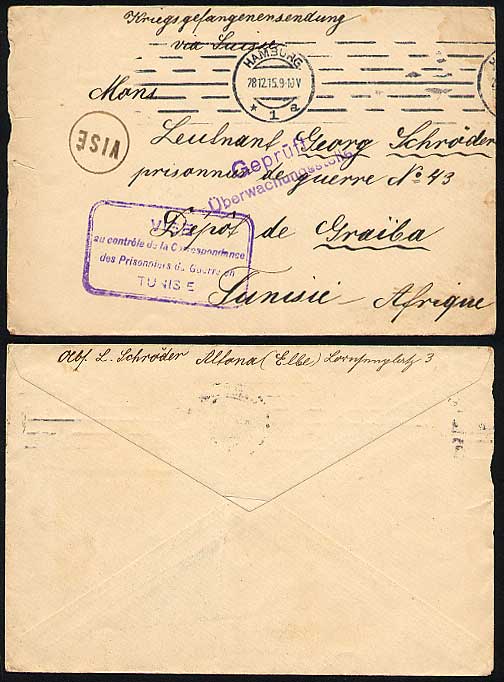 Kriegsgefangenensendung
via Suisse
HAMBURG
28.12.15.9-10V
* 1 a
Mons
VISÉ
Leutnant Georg Schröder
Geprüft
Überwachungsstelle
prisonnier de guerre No 43
Dépôt de Graïba
VISÉ
au contrôle de la Correspondance
des Prisonniers de Guerre en
TUNISIE
Tunisie - Afrique
Abs. L. Schröder Altona (Elbe) 3